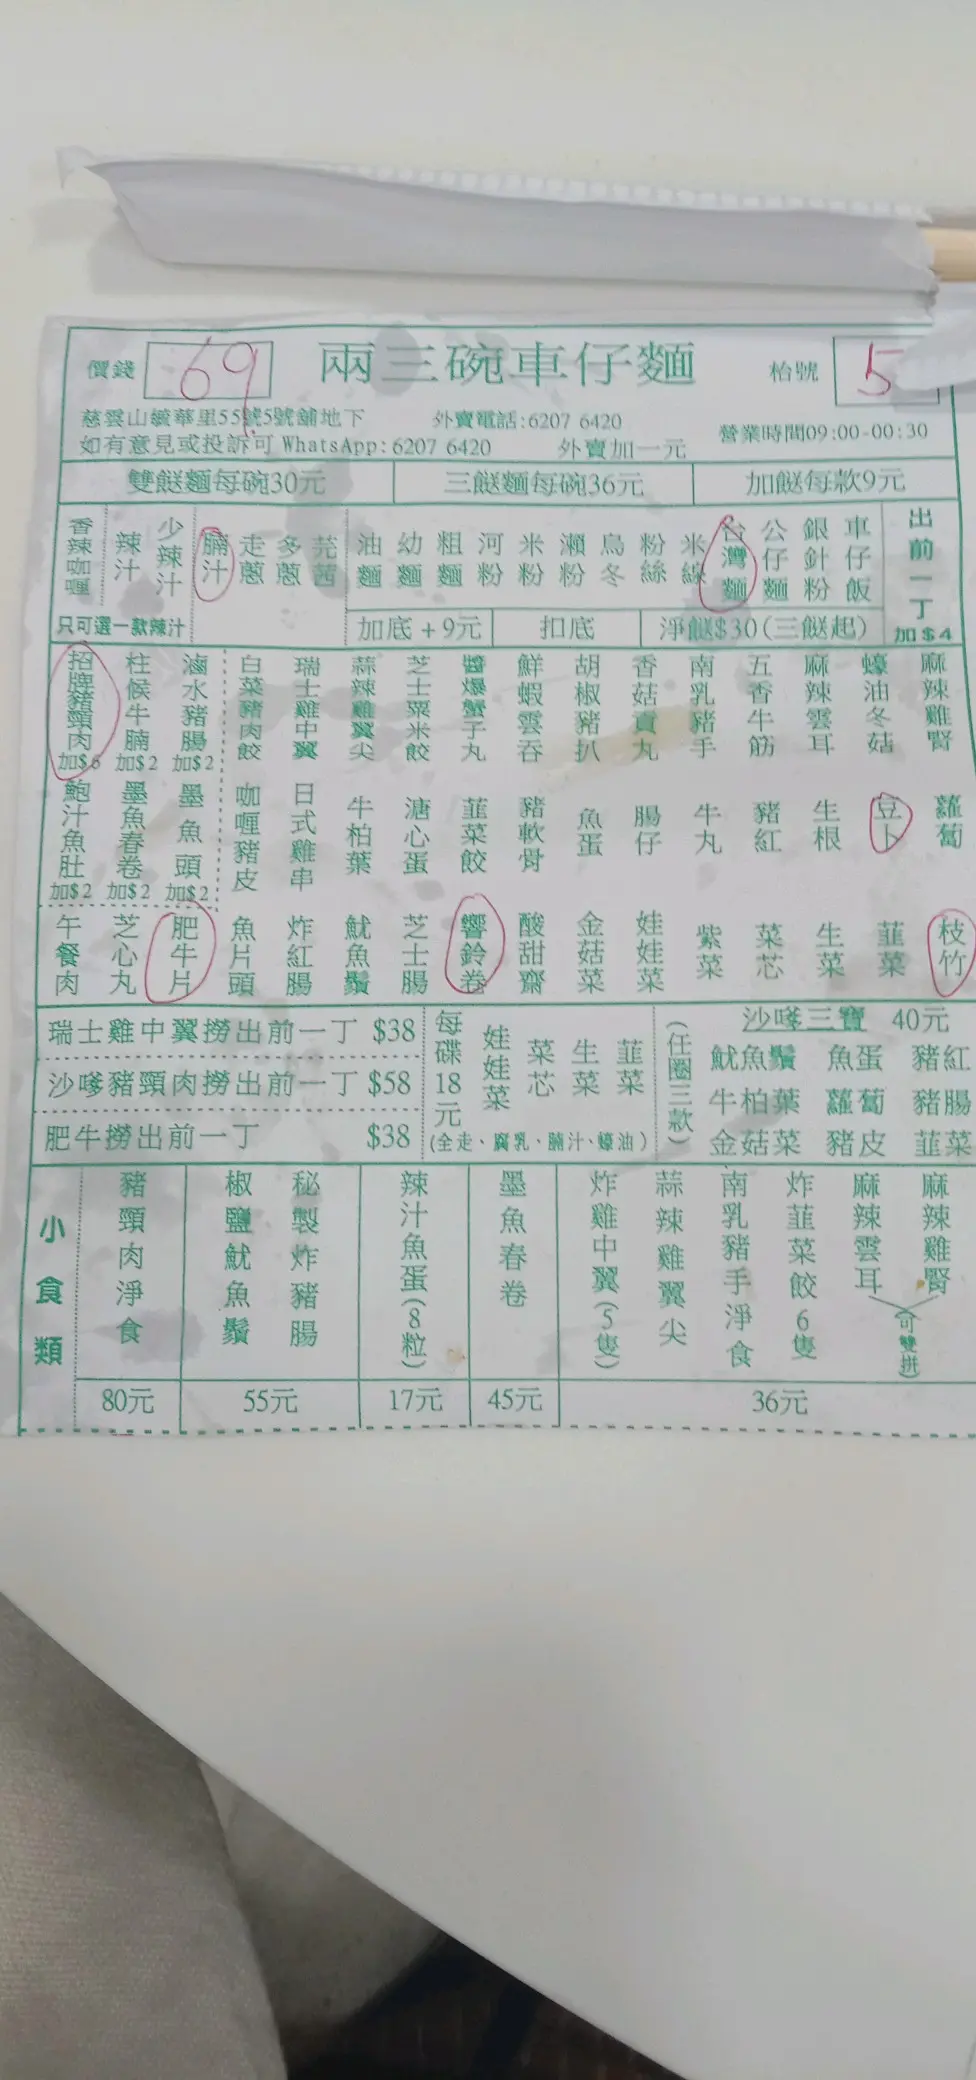 價錢 69 兩三碗車仔麵 枱號 5
慈雲山毓華里55號5號舖地下 外賣電話:6207 6420
如有意見或投訴可 WhatsApp:6207 6420 外賣加一元 營業時間09:00-00:30
雙餸麵每碗30元 三餸麵每碗36元 加餸每款9元
香辣咖喱 辣汁 少辣汁 腩汁 走蔥 多蔥 芫茜 油麵 幼麵 粗麵 河粉 米粉 瀨粉 烏冬 粉絲 米線 台灣麵 公仔麵 銀針粉 車仔飯 出前一丁加$4
只可選一款辣汁 加底+9元 扣底 淨餸$30(三餸起)
招牌豬頸肉加$6 柱候牛腩加$2 滷水豬腸加$2 白菜豬肉餃 瑞士雞中翼 蒜辣雞翼尖 芝士粟米餃 醬爆蟹子丸 鮮蝦雲吞 胡椒豬扒 香菇貢丸 南乳豬手 五香牛筋 麻辣雲耳 蠔油冬菇 麻辣雞腎
鮑汁魚肚加$2 墨魚春卷加$2 墨魚頭加$2 咖喱豬皮 日式雞串 牛柏葉 溏心蛋 韮菜餃 豬軟骨 魚蛋 腸仔 牛丸 豬紅 生根 豆卜 蘿蔔
午餐肉 芝心丸 肥牛片 魚片頭 炸紅腸 魷魚鬚 芝士腸 響鈴卷 酸甜齋 金菇菜 娃娃菜 紫菜 菜芯 生菜 韮菜 枝竹
瑞士雞中翼撈出前一丁 $38
沙嗲豬頸肉撈出前一丁 $58
肥牛撈出前一丁 $38
每碟18元 娃娃菜 菜芯 生菜 韮菜
(全走、腐乳、腩汁、蠔油)
(任圈三款) 沙嗲三寶 40元
魷魚鬚 魚蛋 豬紅
牛柏葉 蘿蔔 豬腸
金菇菜 豬皮 韮菜
小食類
豬頸肉淨食 椒鹽魷魚鬚 秘製炸豬腸 辣汁魚蛋(8粒) 墨魚春卷 炸雞中翼(5隻) 蒜辣雞翼尖 南乳豬手淨食 炸韮菜餃6隻 麻辣雲耳 麻辣雞腎 (可雙拼)
80元 55元 17元 45元 36元